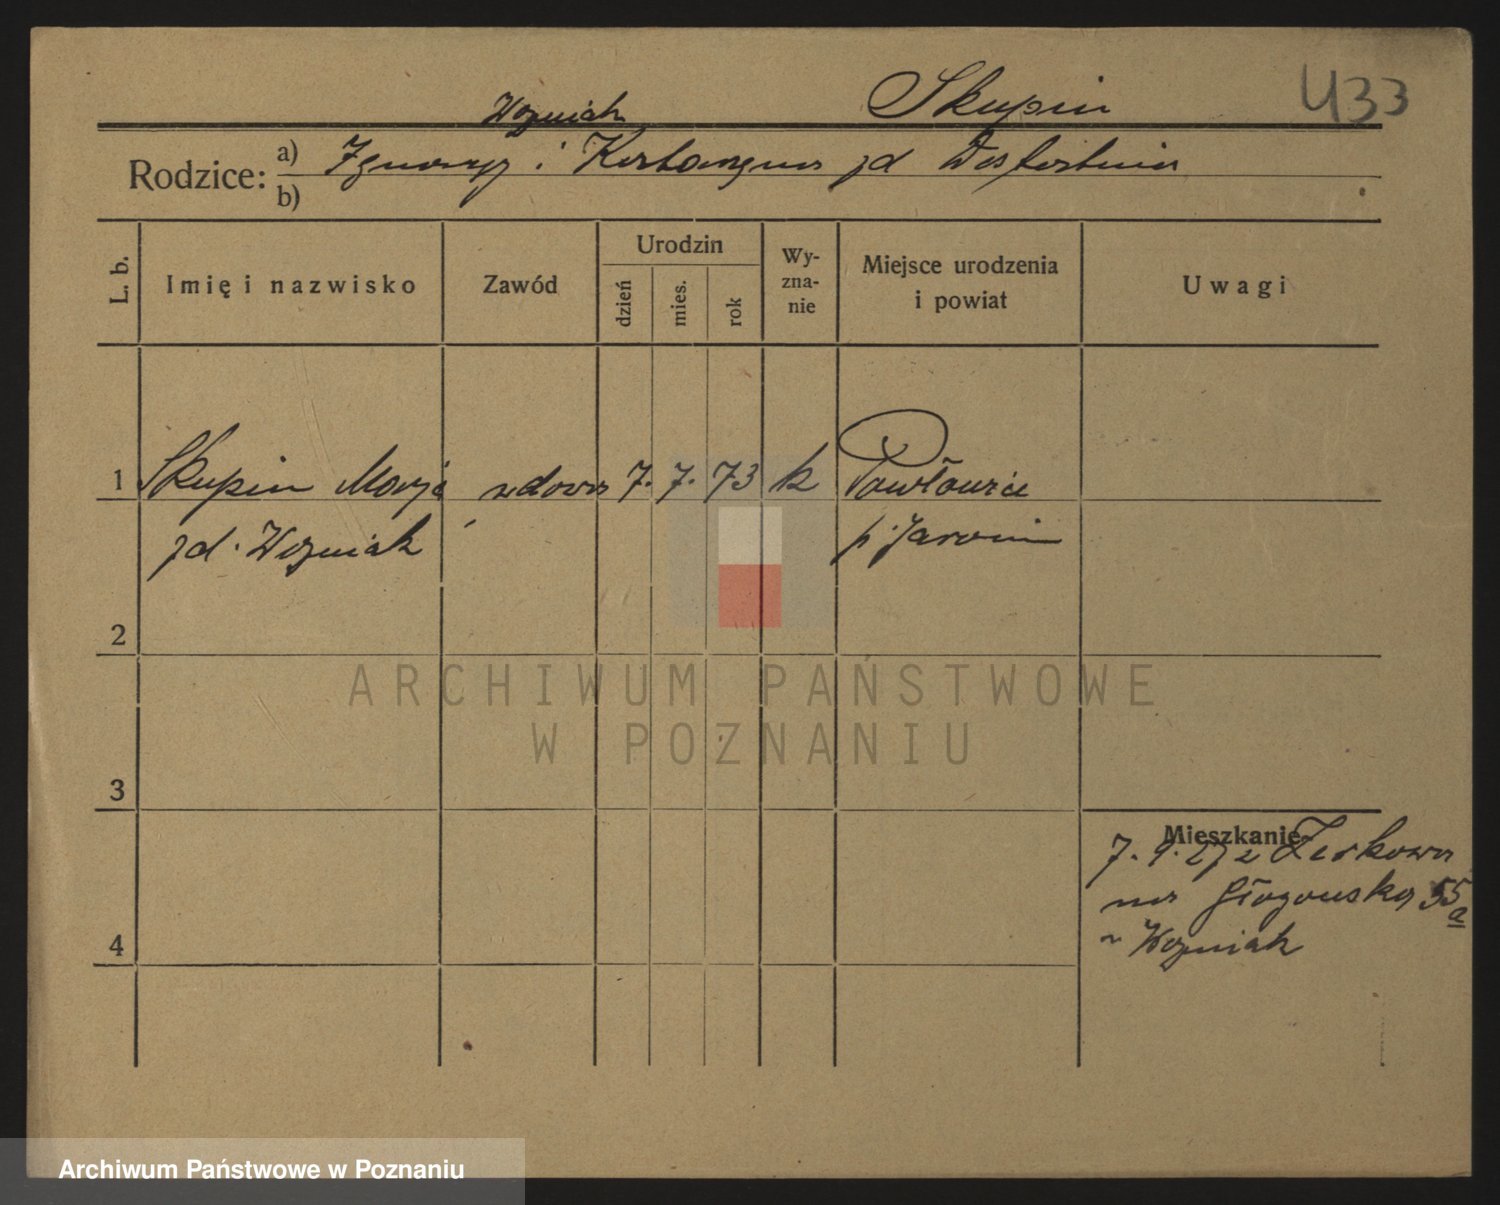 Skupin 433
Wozniak
Rodzice: a) Ignacy i Katarzyna zd
b)
L. b. Imię i nazwisko Zawód Urodzin dzień mies. rok Wyznanie Miejsce urodzenia i powiat Uwagi
1 Skupin Marja wdowa 7. 7. 73 k Pawłowice
zd. Wozniak p. Jarocin
2
ARCHIWUM PAŃSTWOWE
W POZNANIU
3
Mieszkanie
7. 9. 27 z Żerkowa
na Głogowska 55a
Wozniak
4
Archiwum Państwowe w Poznaniu